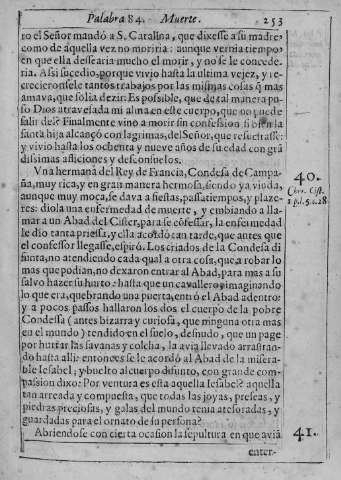 Palabra 84. Muerte. 253
ro el Señor mandó a S. Catalina, que dixesse a su madre,
como de aquella vez no moriria: aunque vernia tiempo,
en que ella dessearia mucho el morir, y no se le concede-
ria. Assi sucedio, porque vivio hasta la ultima vejez, y re-
crecieronsele tantos trabajos por las mismas cosas q̃ mas
amava, que solia dezir: Es possible, que de tal manera pu-
so Dios atravesada mi alma en este cuerpo, que no puede
salir del? Finalmente vino a morir sin confession si bien la
santa hija alcançó con lagrimas, del Señor, que resucitasse:
y vivio hasta los ochenta y nueve años de su edad con grã
dissimas afliciones y desconsuelos.
Vna hermana del Rey de Francia, Condesa de Campa-
ña, muy rica, y en gran manera hermosa, siendo ya viuda,
aunque muy moça, se dava a fiestas, passatiempos, y plaze-
res: diola una enfermedad de muerte, y embiando a lla-
mar a un Abad del Cister, para se cõfessar, la enfermedad
le dio tanta priessa, y ella acordó tan tarde, que antes que
el confessor llegasse, espiró. Los criados de la Condesa di
funta, no atendiendo cada qual a otra cosa, que a robar lo
mas que podian, no dexaron entrar al Abad, para mas a su
salvo hazer su hurto: hasta que un cavallero imaginando
lo que era, quebrando una puerta, entró el Abad adentro:
y a pocos passos hallaron los dos el cuerpo de la pobre
Condessa (antes bizarra y curiosa, que ninguna otra mas
en el mundo) tendido en el suelo, desnudo, que un page
por hurtar las savanas y colcha, la avia llevado arrastran-
do hasta alli: entonces se le acordó al Abad de la misera-
ble Iesabel; y buelto al cuerpo difunto, con grande com-
passion dixo: Por ventura es esta aquella Iesabel? aquella
tan arreada y compuesta, que todas las joyas, preseas, y
piedras preciosas, y galas del mundo tenia atesoradas, y
guardadas para el ornato de su persona?
40.
Chro. Cist.
1 p.l.5.c.28
Abriendose con cierta ocasion la sepultura en que aviã
41.
enter-